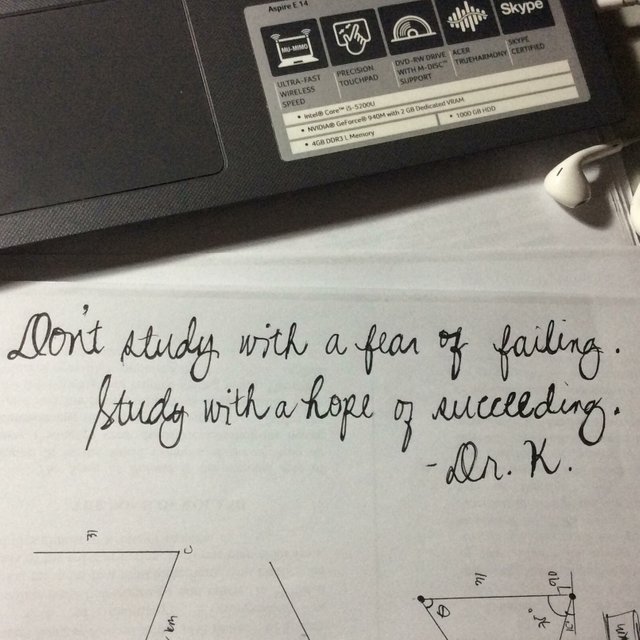 Aspire E 14
MU-MIMO
Skype
ULTRA-FAST
WIRELESS
SPEED
PRECISION
TOUCHPAD
DVD-RW DRIVE
WITH M-DISC™
SUPPORT
ACER
TRUEHARMONY
SKYPE
CERTIFIED
• Intel® Core™ i5-5200U
• NVIDIA® GeForce® 940M with 2 GB Dedicated VRAM
• 4GB DDR3 L Memory
• 1000 GB HDD
Don't study with a fear of failing.
Study with a hope of succeeding.
- Dr. K.
C
km
θ